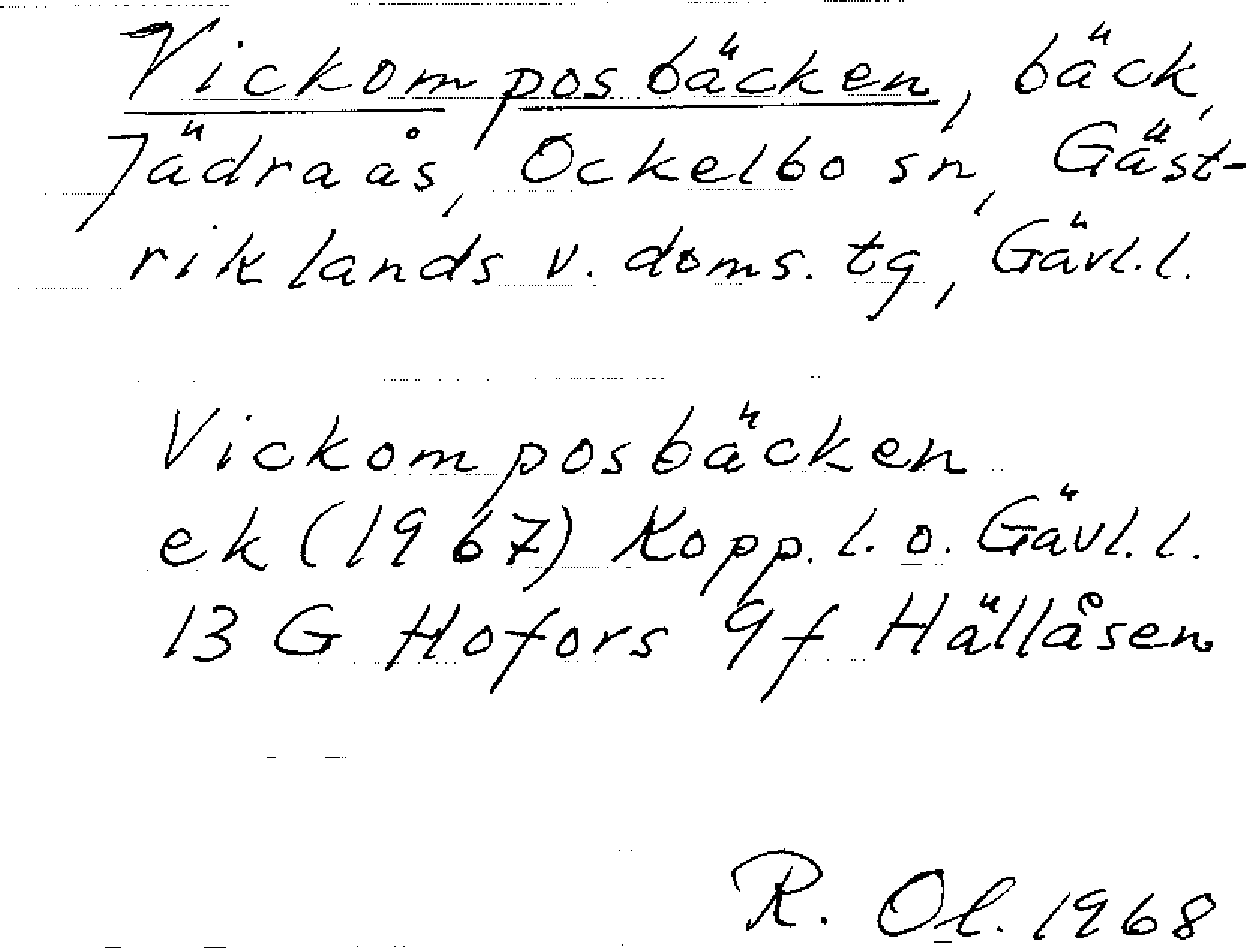 Vickomposbäcken, bäck,
Jädraås, Ockelbo sn, Gäst-
riklands v. doms. tg, Gävl. l.
Vickomposbäcken
ek (1967) Kopp. l. o. Gävl. l.
13 G Hofors 9 f Hällåsen
R. Ol. 1968